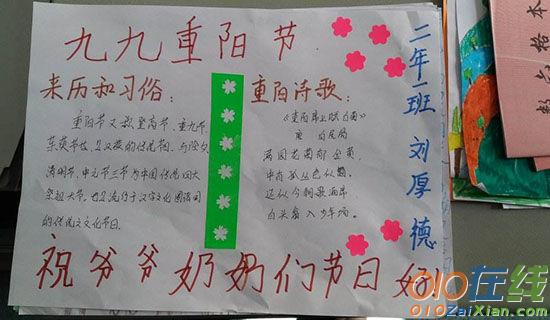 九九重阳节
来历和习俗:
重阳节又称登高节、重九节、
茱萸节
是汉族的传统节
清明节、中元节三节为中国传统四大
祭祖大节。也是流行于汉字文化圈诸国
的传统文化节日。
重阳诗歌:
《重阳席上赋白菊》
唐
满园花菊郁金黄,
中有孤丛色似
还似今朝歌酒席
白头翁入少年场。
二年一班 刘厚德
祝爷爷奶奶们节日好
数
本
010在线
010ZaiXian.com